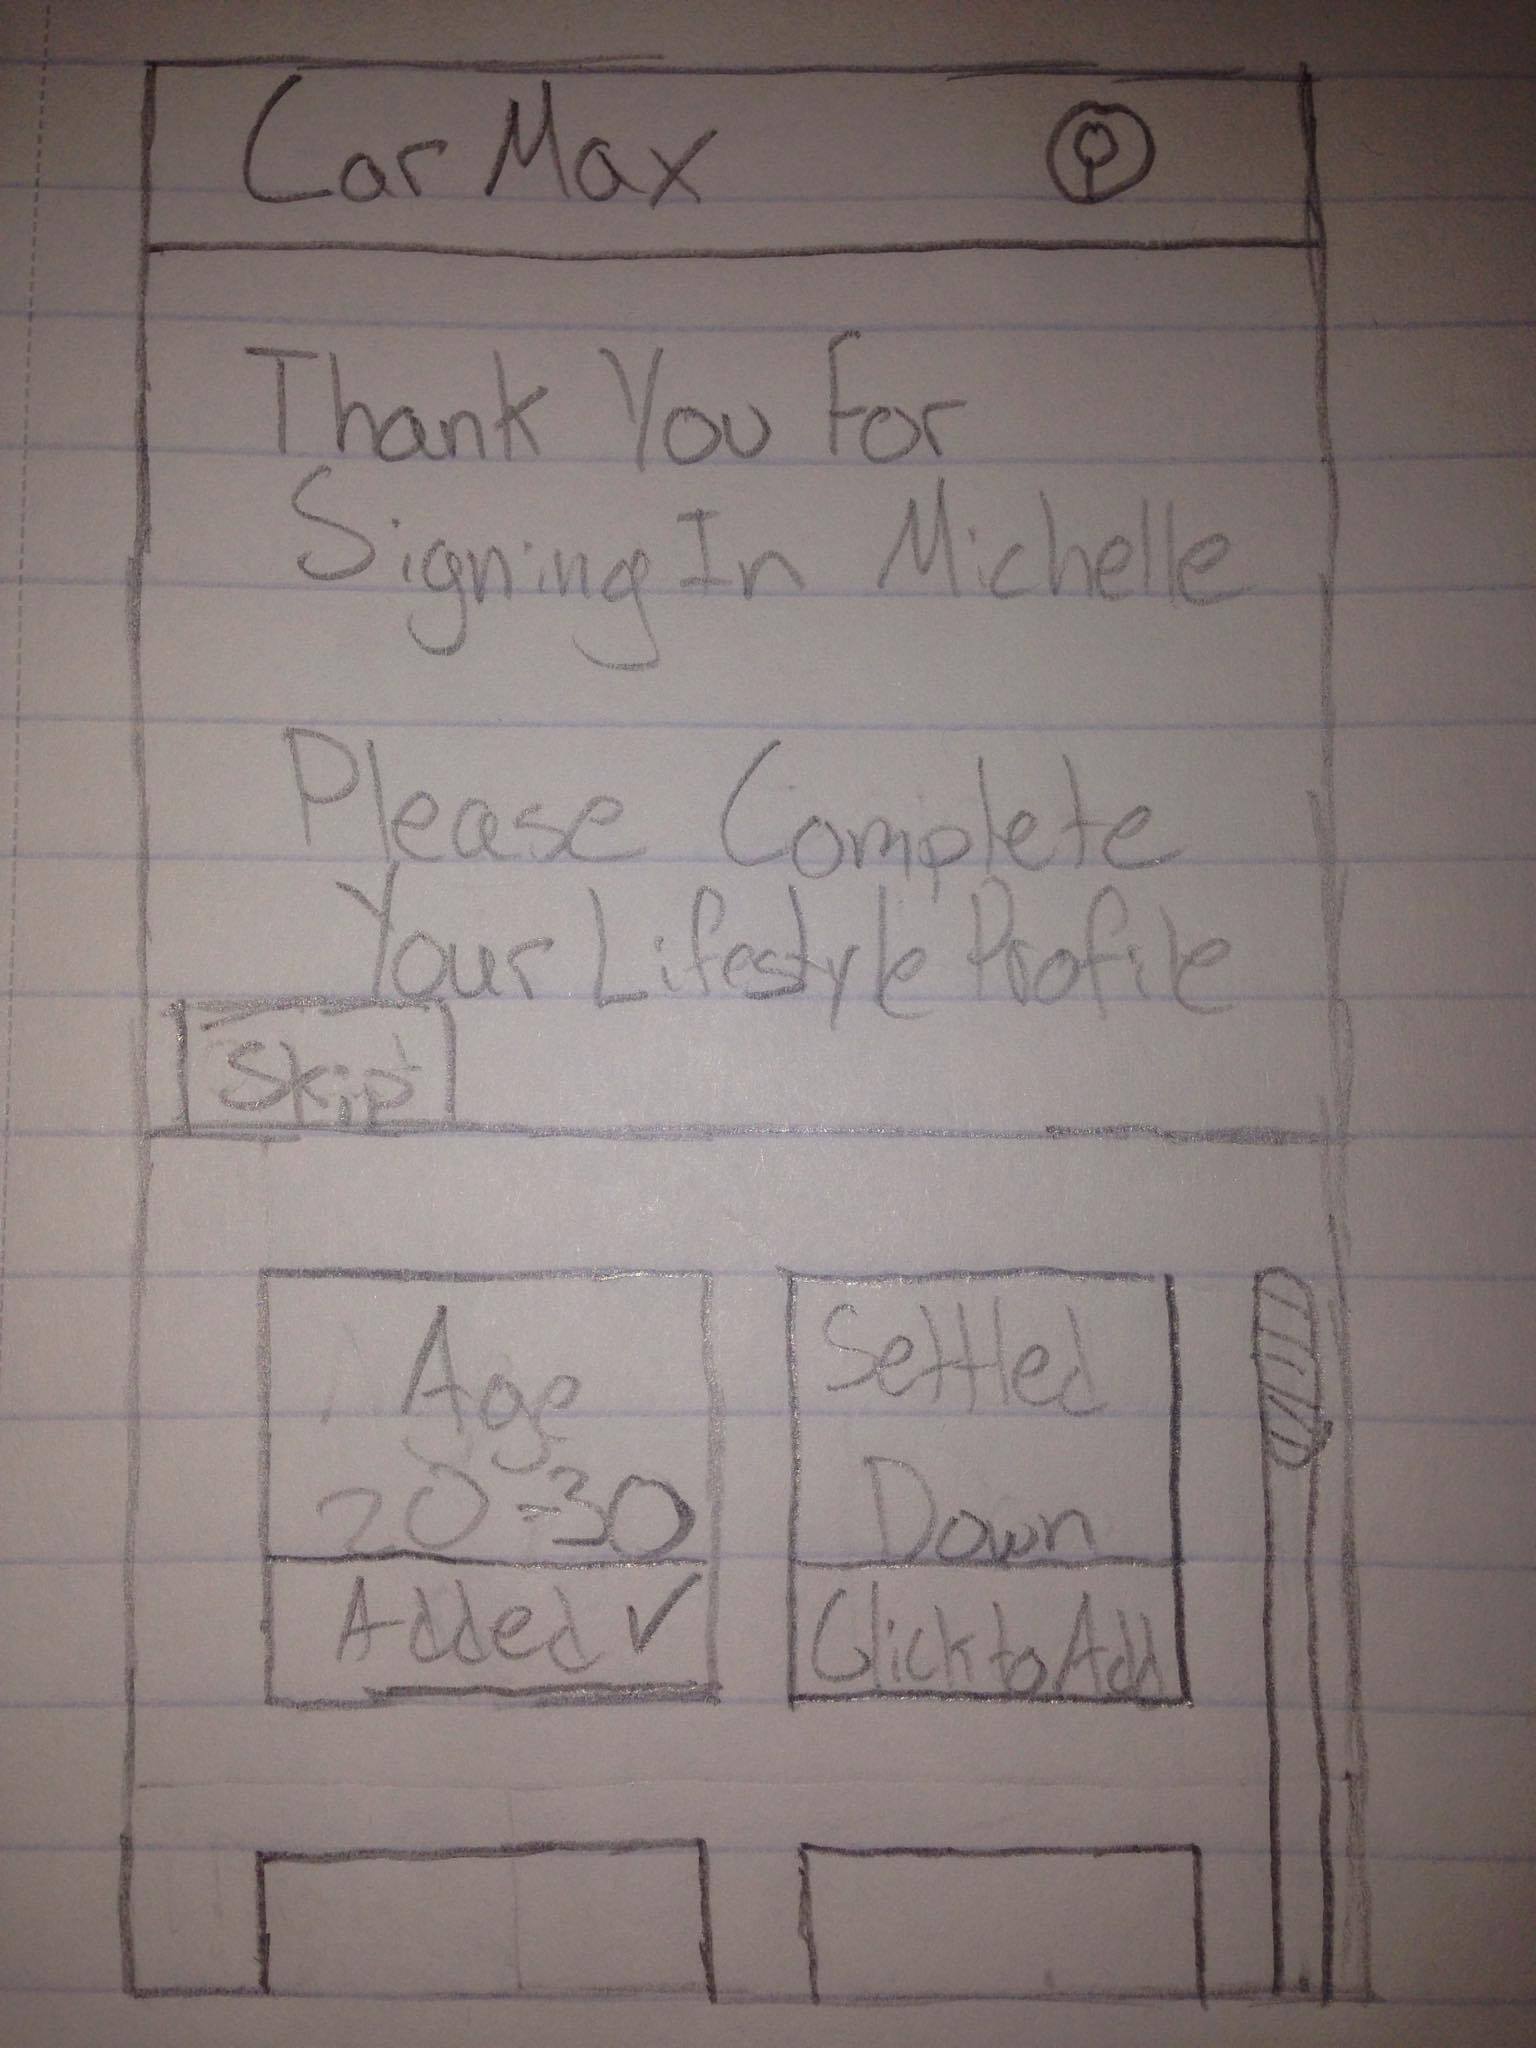 CarMax
Thank You For
Signing In Michelle
Please Complete
Your Lifestyle Profile
Skip
Age
20-30
Added ✓
Settled
Down
Click to Add